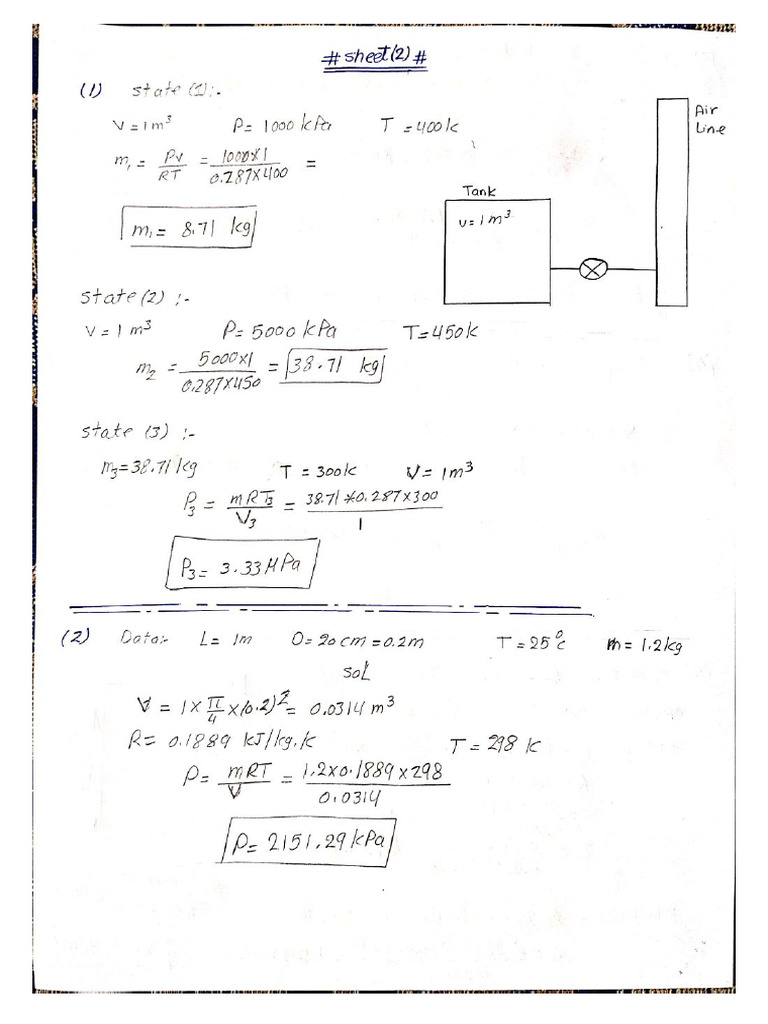 # sheet(2) #
(1) state (1):-
V = 1m³ P= 1000 kPa T = 400k
m₁ = PV/RT = 1000×1/0.287×400 =
m₁ = 8.71 kg
Tank
V=1m³
Air
Line
state(2) :-
V = 1 m³ P= 5000 kPa T=450k
m₂ = 5000×1/0.287×450 = 38.71 kg
state (3) :-
m₃=38.71kg T = 300k V = 1m³
P₃ = mRT₃/V₃ = 38.71*0.287×300/1
P₃ = 3.33MPa
(2) Data:- L= 1m D= 20cm =0.2m T=25°c m=1.2kg
sol
V = 1×π/4×(0.2)² = 0.0314 m³
R= 0.1889 kJ/kg.k T = 298 k
P= mRT/V = 1.2×0.1889×298/0.0314
P= 2151.29kPa